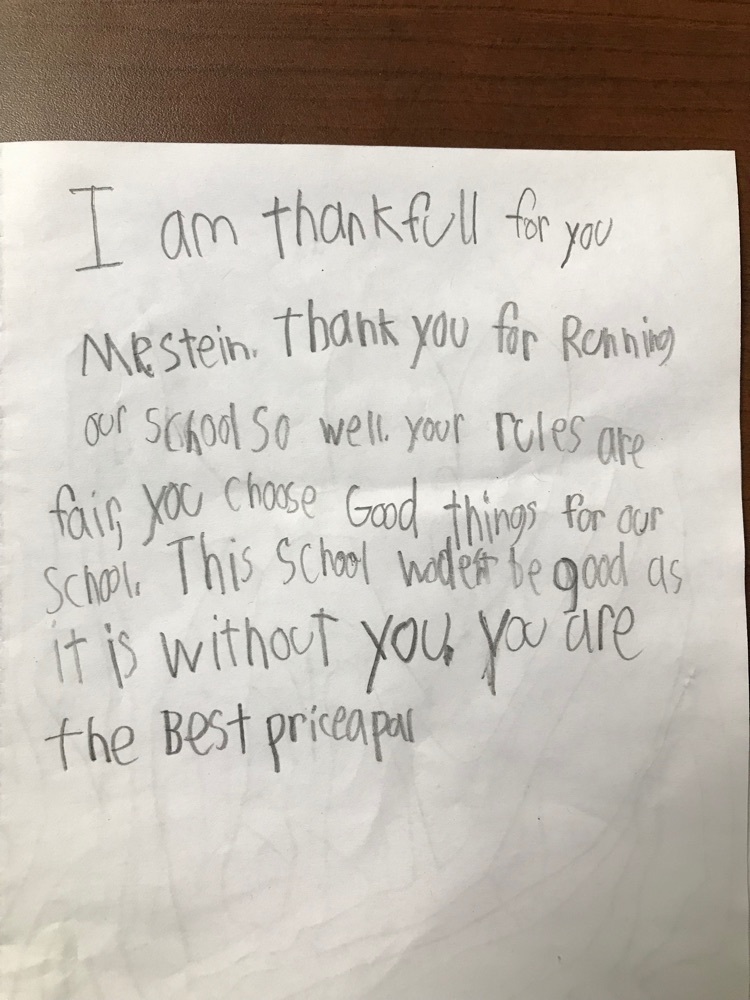 I am thankfull for you
MRstein. Thank you for Running
our School So well. your rules are
fair, you choose Good things for our
School. This School wodent be good as
it is without you. you are
the Best priceapal